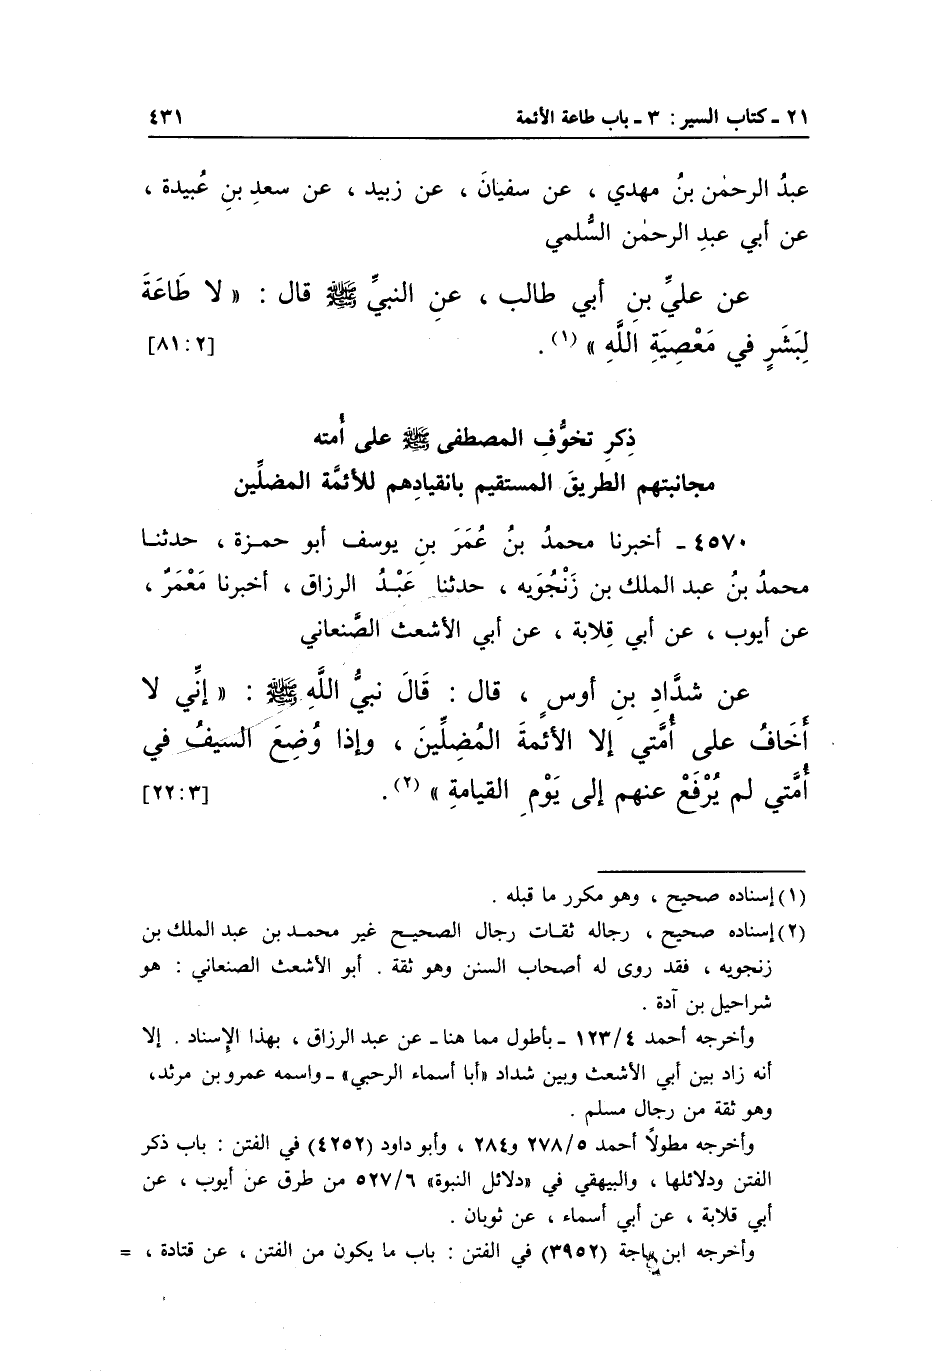 ٢١ ـ كتاب السير : ٣ ـ باب طاعة الأئمة ٤٣١
عبدُ الرحمٰن بنُ مهدي ، عن سفيانَ ، عن زبيد ، عن سعدِ بنِ عُبيدة ،
عن أبي عبدِ الرحمٰن السُّلمي
عن عليِّ بنِ أبي طالب ، عنِ النبيِّ ﷺ قال : « لا طَاعَةَ
لِبَشَرٍ في مَعْصِيَةِ اللَّهِ » (١) . [٨١:٢]
ذِكرِ تخوُّفِ المصطفى ﷺ على أُمته
مجانبتهم الطريقَ المستقيم بانقيادِهم للأئمَّة المضلِّين
٤٥٧٠ ـ أخبرنا محمدُ بنُ عُمَرَ بنِ يوسف أبو حمزة ، حدثنا
محمدُ بنُ عبد الملك بن زَنْجُوَيه ، حدثنا عَبْدُ الرزاق ، أخبرنا مَعْمَرٌ ،
عن أيوب ، عن أبي قِلابة ، عن أبي الأشعث الصَّنعاني
عن شدَّادِ بنِ أوسٍ ، قال : قَالَ نبيُّ اللَّهِ ﷺ : « إنِّي لا
أَخَافُ على أُمَّتي إلا الأئمةَ المُضِلِّينَ ، وإذا وُضِعَ السَّيفُ في
أُمَّتي لم يُرْفَعْ عنهم إلى يَوْمِ القيامةِ » (٢) . [٢٢:٣]
(١) إسناده صحيح ، وهو مكرر ما قبله .
(٢) إسناده صحيح ، رجاله ثقات رجال الصحيح غير محمد بن عبد الملك بن
زنجويه ، فقد روى له أصحاب السنن وهو ثقة . أبو الأشعث الصنعاني : هو
شراحيل بن آدة .
وأخرجه أحمد ١٢٣/٤ ـ بأطول مما هنا ـ عن عبد الرزاق ، بهذا الإسناد . إلا
أنه زاد بين أبي الأشعث وبين شداد «أبا أسماء الرحبي» ـ واسمه عمرو بن مرثد،
وهو ثقة من رجال مسلم .
وأخرجه مطولاً أحمد ٢٧٨/٥ و٢٨٤ ، وأبو داود (٤٢٥٢) في الفتن : باب ذكر
الفتن ودلائلها ، والبيهقي في «دلائل النبوة» ٥٢٧/٦ من طرق عن أيوب ، عن
أبي قلابة ، عن أبي أسماء ، عن ثوبان .
وأخرجه ابن ماجة (٣٩٥٢) في الفتن : باب ما يكون من الفتن ، عن قتادة ، =